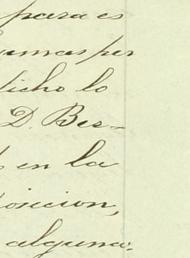 para es
gunas per
dicho lo
D. Ber-
en la
posicion,
alguna.